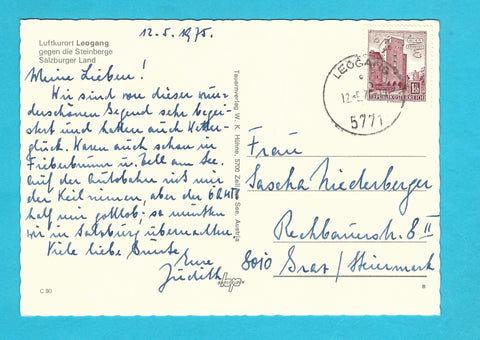 12.5.1975.
Luftkurort Leogang
gegen die Steinberge
Salzburger Land
Meine Lieben!
Wir sind von dieser wun-
derschönen Gegend sehr begei-
stert und hatten auch Wetter-
glück. Waren auch schon in
Fieberbrunn u. Zell am See.
Auf der Autobahn riß mir
der Keilriemen, aber der ÖAMTC
half mir gottlob; so mußten
wir in Salzburg übernachten.
Viele liebe Grüße
Eure
Judith
C 90
Tauernverlag W. K. Höhne, 5700 Zell am See, Austria
LEOGANG
12.-5.75
5771
REPUBLIK ÖSTERREICH
Frau
Sascha Niederberger
Rechbauerstr. 8 II
8010 Graz / Steiermark
B